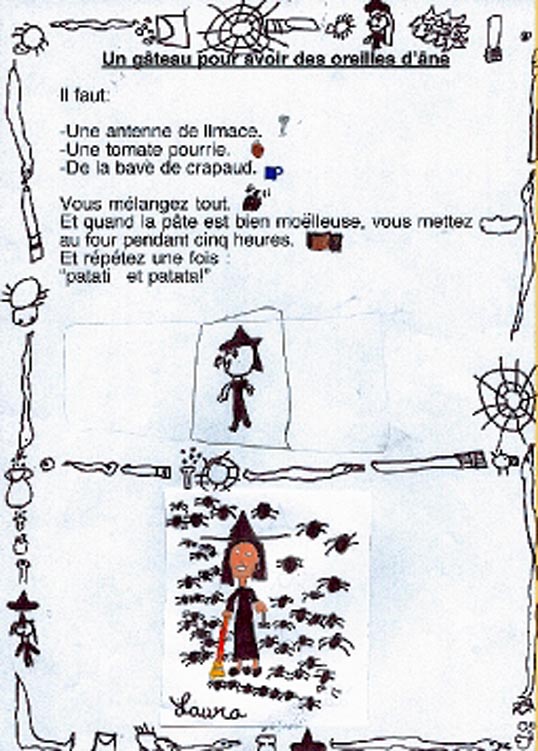 Un gâteau pour avoir des oreilles d'âne
Il faut:
-Une antenne de limace.
-Une tomate pourrie.
-De la bave de crapaud.
Vous mélangez tout.
Et quand la pâte est bien moëlleuse, vous mettez
au four pendant cinq heures.
Et répétez une fois :
"patati et patata!"
Laura